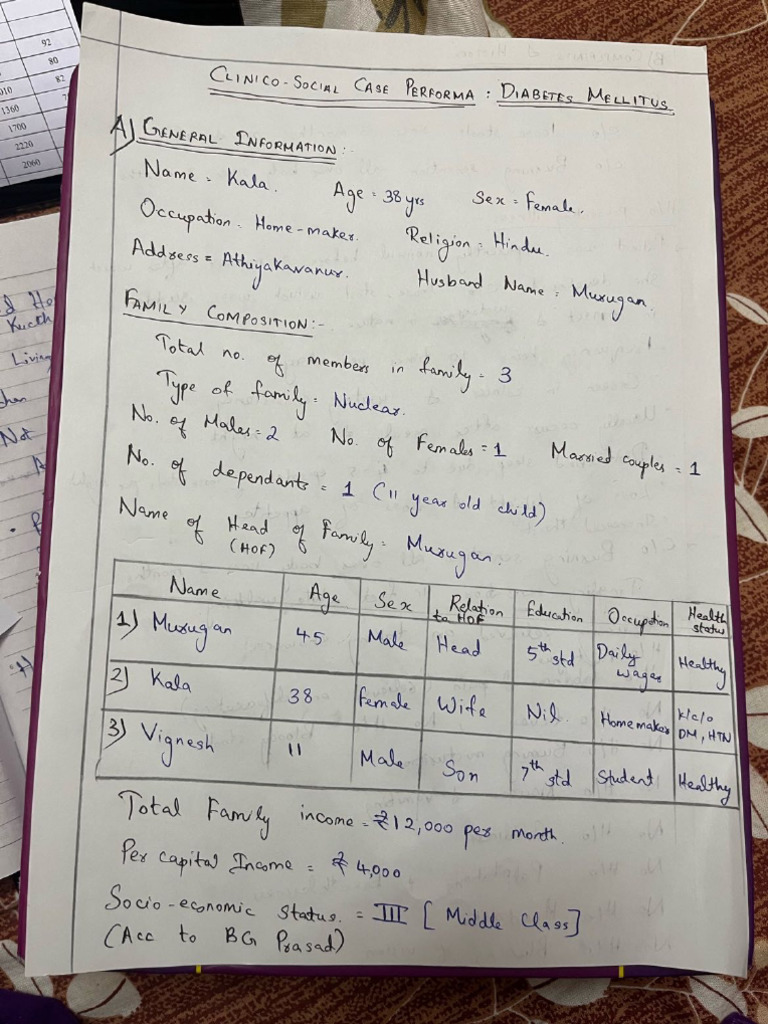 92
80
82
1360
1700
2220
2060
CLINICO-SOCIAL CASE PERFORMA : DIABETES MELLITUS
A) GENERAL INFORMATION :-
Name = Kala. Age = 38 yrs Sex = Female.
Occupation = Home-maker. Religion = Hindu.
Address = Athiyakavanur. Husband Name = Murugan.
FAMILY COMPOSITION :-
Total no. of members in family = 3
Type of family = Nuclear.
No. of Males = 2 No. of Females = 1 Married couples = 1
No. of dependants = 1 (11 year old child)
Name of Head of Family = Murugan.
(HOF)
Name Age Sex Relation to HOF Education Occupation Health status
1) Murugan 45 Male Head 5th std Daily wages Healthy
2) Kala 38 Female Wife Nil. Homemaker k/c/o DM, HTN
3) Vignesh 11 Male Son 7th std Student Healthy
Total Family income = ₹12,000 per month.
Per capital Income = ₹ 4,000
Socio-economic Status. = III [Middle Class]
(Acc to BG Prasad)
Living
Not